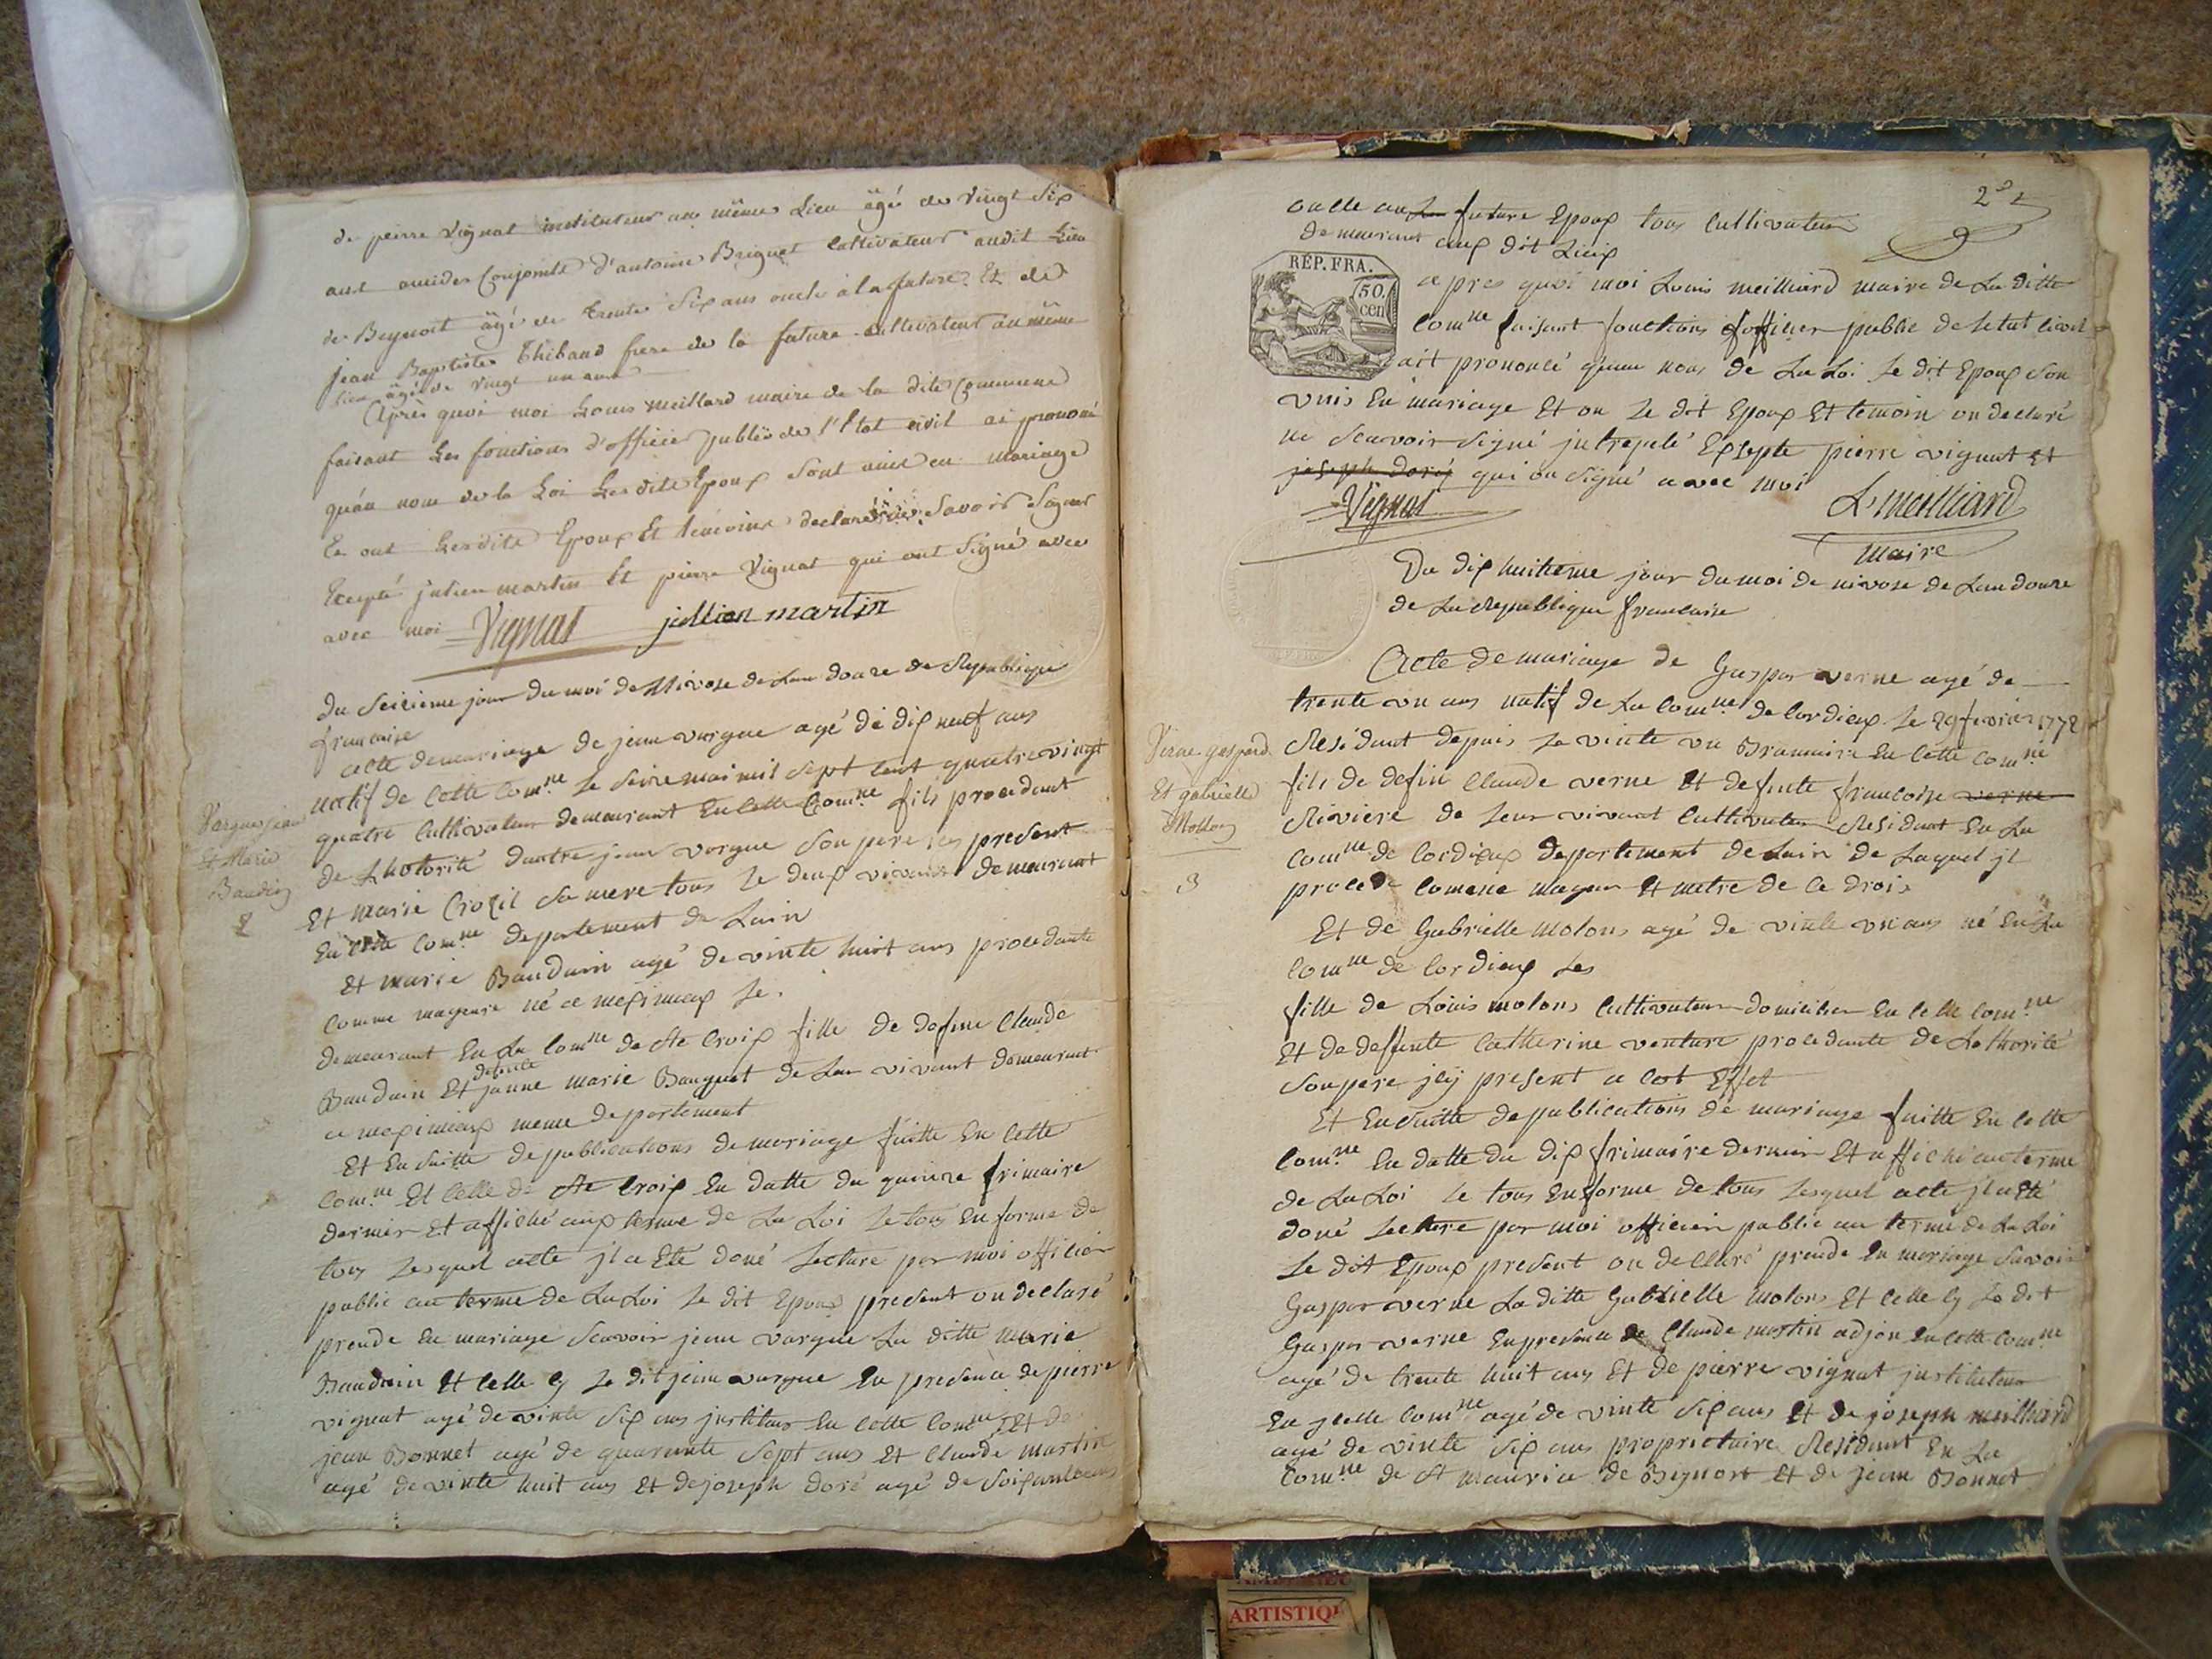 de pierre Vignat instituteur au même Lieu âgé de vingt Six
ans amides Conjoints d'antoine Briguet Cultivateur audit Lieu
de Beynost âgé de trente Six ans oncle à la future Et de
jean Baptiste Thibaud frere de la future cultivateur au même
lieu âgé de vingt un ans
Après quoi moi Louis Meillard maire de la dite Commune
faisant Les fonctions d'officier public de l'Etat civil ai prononcé
qu'au nom de la Loi Les dits Epoux Sont unis en mariage
Et ont Lesdits Epoux Et témoins declaré ne Savoir Signer
Excepté julien martin Et pierre Vignat qui ont Signé avec
avec moi Vignat jullien martin
Du Seizieme jour du moi de Nivose de Lan douze de Republique
francaise
acte de mariage de jean vargue agé de dix neuf ans
natif de Cette Com.ne Le Seize mai mil Sept Cent quatre vingt
quatre Cultivateur demeurant En Cette Com.ne fils procedant
de Lhotorité dautre jean vorgue Son pere present
Et marie Crozil Sa mere tous Le deux vivant demeurant
En Cette Com.ne departement de Lain
Et marie Bauduin agé de vinte huit ans procedante
Comme mageure né a meximieux Le.
demeurant En La Com.ne de Ste Croix fille de defunt Claude
defunte
Bauduin Et janne marie Bauquet de Leur vivant demeurant
a meximieux meme departement
Et En Suitte de publications de mariage faitte En Cette
Com.ne Et Celle de Ste Croix En datte du quinze frimaire
dernier Et affiché aux terme de La Loi Le tous En forme de
tous Lesquel acte jl a Eté doné Lecture par moi officier
public au terme de La Loi Le dit Epoux present on declaré
prende En mariage Scavoir jean vargue La ditte marie
Bauduin Et Celle Cy Le dit jean vargue En presence de pierre
vignat agé de vinte Six ans justituteur En Cette Com.ne Et de
jean Bonnet agé de quarante Sept ans Et Claude martin
agé de vinte huit ans Et de joseph doré agé de Soixante ans
Vargue jean
Et Marie
Baudin
2
2
oncle au La future Epoux tous Cultivateur
demeurant aux dit Lieux
RÉP. FRA.
50.
cen
apres quoi moi Louis meilliard maire de La ditte
Com.ne faisant fonctions d'officier public de Letat Civil
ait prononcé quau nom de La Loi Le dit Epoux Son
vnis En mariage Et on Le dit Epoux Et temoin on declaré
ne Scavoir Signé jnterpelé Exsepte pierre vignat Et
joseph doré qui on Signé avec moi
Vignat L. meilliard
maire
Du dix huitieme jour du moi de nivose de Lan douze
de La Republique francaise
Acte de mariage de Gaspar verne agé de
trente vn ans natif de La Com.ne de Cordieux Le 29 fevrier 1772
Residant depuis Le vinte vn Brumaire En Cette Com.ne
fils de defun Claude verne Et defunte francoise verne
Riviere de Leur vivant Cultivateur Residant En La
Com.ne de Cordieux departement de Lain de Laquel jl
procede Comme mageur Et metre de Ce drois
Et de Gabrielle molons agé de vinte vn ans né En La
Com.ne de Cordieux Les
fille de Louis molons Cultivateur domicilier En Cette Com.ne
Et de deffunte Catherine venture procedante de Lothorité
Son pere jcy present a Cet Effet
Et En Suitte de publications de mariage faitte En Cette
Com.ne En datte du dix frimaire dernier Et affiché au terme
de La Loi Le tous En forme de tous Lesquel acte jl a Eté
doné Lecture par moi officier public au terme de La Loi
Le dit Epoux present on declaré prende En mariage Savoir
Gaspar verne La ditte Gabrielle molons Et Celle Cy Le dit
Gaspar verne En presence de Claude martin adjoin En Cette Com.ne
agé de trente huit ans Et de pierre vignat justituteur
En jcelle Com.ne agé de vinte Six ans Et de joseph meilliard
agé de vinte Six ans proprietaire Residant En La
Com.ne de St maurice de Beynost Et de jean Bonnet
Verne gaspard
Et gabrielle
Mollon
3
ARTISTIQU